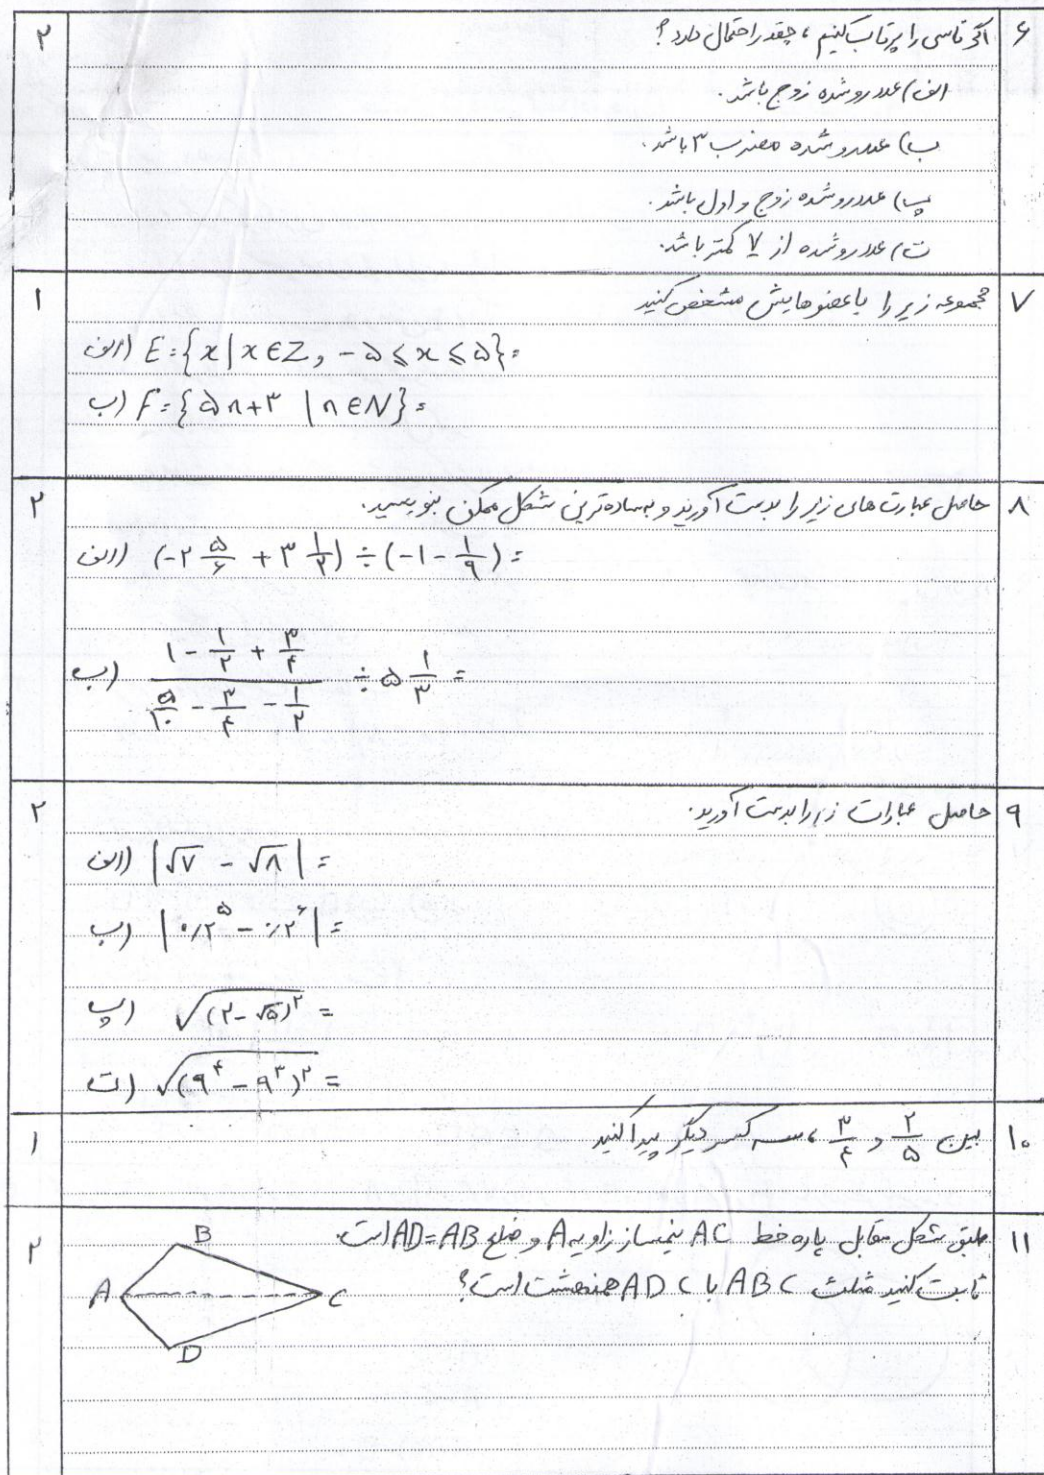 ۶ اگر تاسی را پرتاب کنیم، چقدر احتمال دارد؟ ۲
الف) عدد رو شده زوج باشد.
ب) عدد رو شده مضرب ۳ باشد.
پ) عدد رو شده زوج و اول باشد.
ت) عدد رو شده از ۷ کمتر باشد.
۷ مجموعه زیر را با عضوهایش مشخص کنید ۱
الف) E={x|x∈Z, -۵≤x≤۵}=
ب) F={۵n+۳ | n∈N}=
۸ حاصل عبارت های زیر را بدست آورید و به ساده ترین شکل ممکن بنویسید. ۲
الف) (-۲ ۵/۶ + ۳ ۱/۲) ÷ (-۱ - ۱/۹) =
ب) (۱ - ۱/۲ + ۳/۴)/(۵/۱۰ - ۳/۴ - ۱/۲) ÷ ۵ ۱/۳ =
۹ حاصل عبارات زیر را بدست آورید. ۲
الف) |√۷ - √۸| =
ب) |۰/۲^۵ - ۰/۲^۶| =
پ) √(۲-√۵)^۲ =
ت) √(۹^۴ - ۹^۳)^۲ =
۱۰ بین ۲/۵ و ۳/۴، سه کسر دیگر پیدا کنید ۱
۱۱ طبق شکل مقابل پاره خط AC نیمساز زاویه A و ضلع AD=AB است. ۲
ثابت کنید مثلث ABC با ADC همنهشت است؟
B
A
C
D